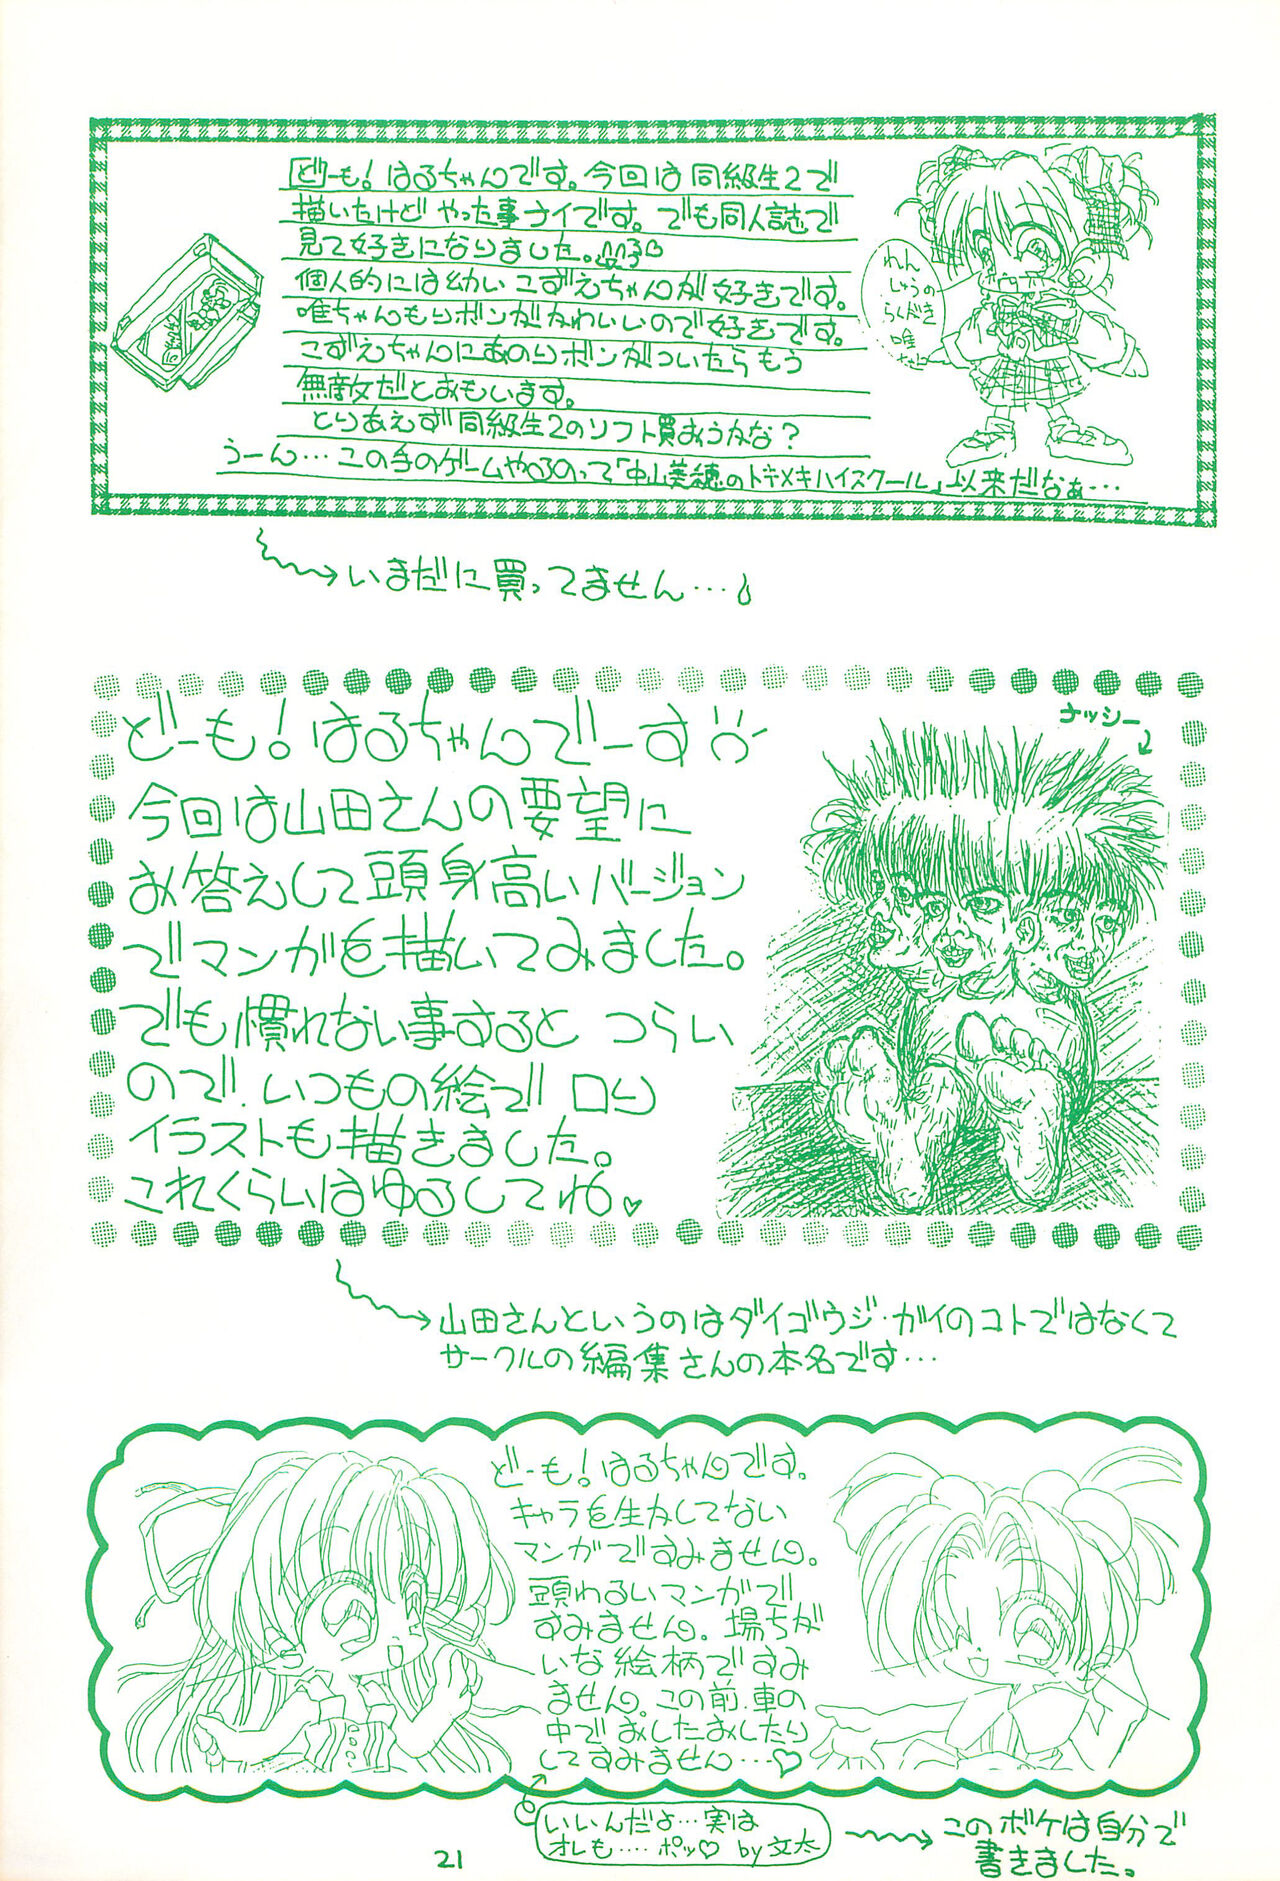 どーも！はるちゃんです。今回は同級生2で
描いたけどやった事ナイです。でも同人誌で
見て好きになりました。
個人的には幼いこずえちゃんが好きです。
唯ちゃんもリボンがかわいいので好きです。
こずえちゃんにあのリボンがついたらもう
無敵だとおもいます。
とりあえず同級生2のソフト買おうかな？
うーん…この手のゲームやるのって「中山美穂のトキメキハイスクール」以来だなぁ…
れん
しゅうの
らくがき
唯
ちゃん
いまだに買ってません…
どーも！はるちゃんでーす
今回は山田さんの要望に
お答えして頭身高いバージョン
でマンガを描いてみました。
でも慣れない事すると つらい
ので、いつもの絵で ロリ
イラストも描きました。
これくらいはゆるしてね♥
ナッシー
山田さんというのはダイゴウジ・ガイのコトではなくて
サークルの編集さんの本名です…
どーも！はるちゃんです。
キャラを生かしてない
マンガですみません。
頭わるいマンガで
すみません。場ちが
いな絵柄ですみ
ません。この前、車の
中でおしたおしたり
してすみません…♡
いいんだよ…実は
オレも….ポッ♡ by 文太
このボケは自分で
書きました。
21